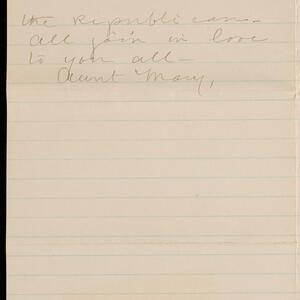 the Republican –
all join in love
to you all –
Aunt Mary,